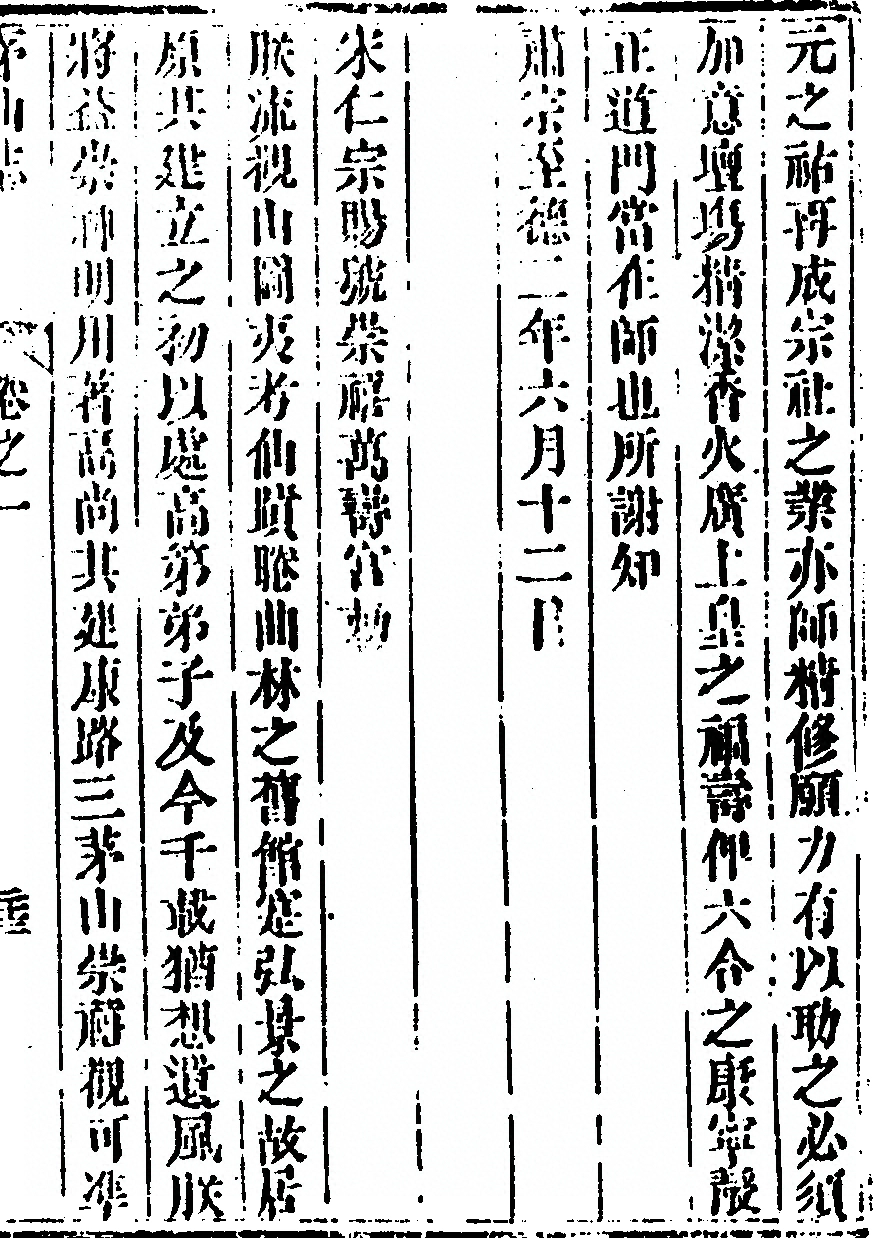 元之祐再成宗社之業亦師精修願力有以助之必須
加意壇場精潔香火廣上皇之福壽俾六合之康寧啟
正道門當在師也所謝知
肅宗至德二年六月十二日
宋仁宗賜號崇禧萬壽宮勅
朕流觀山圖夷考仙蹟睠曲林之舊館寔弘景之故居
原其建立之初以處高第弟子及今千載猶想遺風朕
將益崇神明用著高尚其建康路三茅山崇禧觀可準
茅山志 卷之一 重